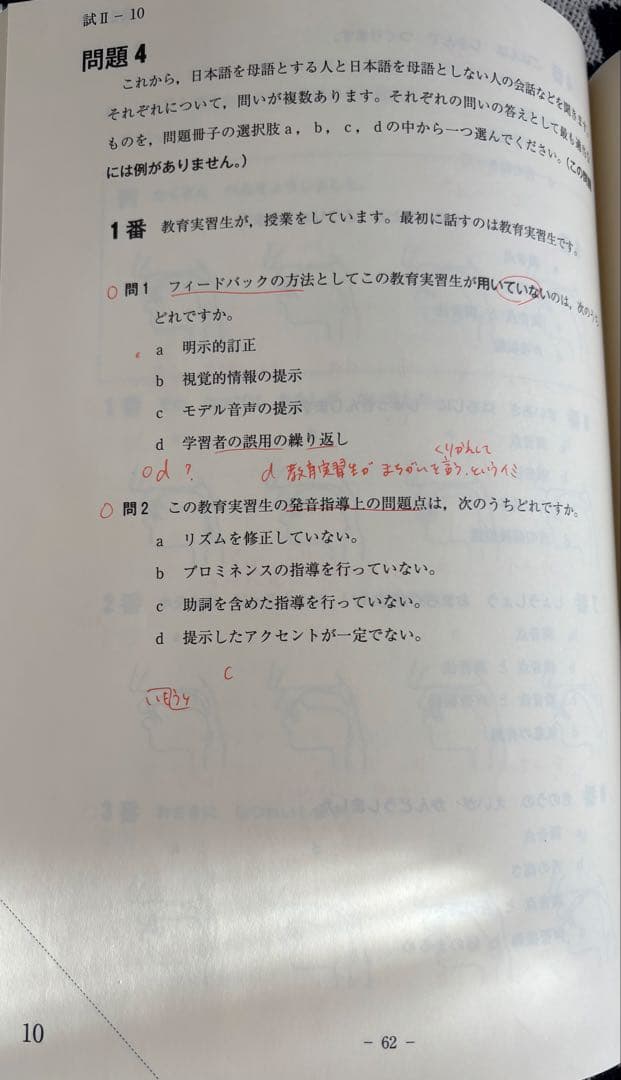 試Ⅱ－10
問題4
これから，日本語を母語とする人と日本語を母語としない人の会話などを聞きます。
それぞれについて，問いが複数あります。それぞれの問いの答えとして最も適当な
ものを，問題冊子の選択肢a，b，c，dの中から一つ選んでください。（この問題
には例がありません。）
1番 教育実習生が，授業をしています。最初に話すのは教育実習生です。
○ 問1 フィードバックの方法としてこの教育実習生が用いていないのは，次のうち
どれですか。
a 明示的訂正
b 視覚的情報の提示
c モデル音声の提示
d 学習者の誤用の繰り返し
くりかえして
○d？ d 教育実習生が まちがいを言う、というイミ
○ 問2 この教育実習生の発音指導上の問題点は，次のうちどれですか。
a リズムを修正していない。
b プロミネンスの指導を行っていない。
c 助詞を含めた指導を行っていない。
d 提示したアクセントが一定でない。
c
10
－ 62 －